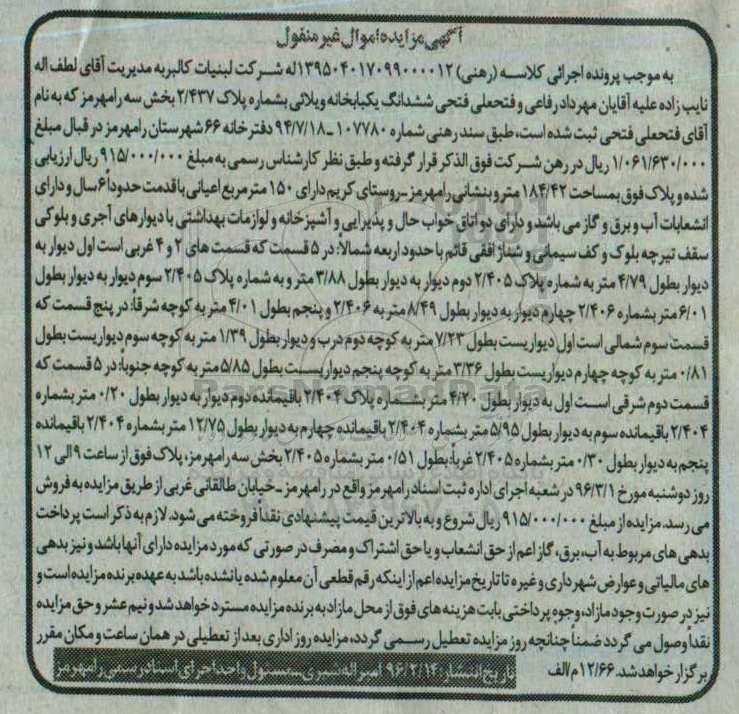 آگهی مزایده اموال غیر منقول
به موجب پرونده اجرائی کلاسه (رهنی) ۱۳۹۵۰۴۰۱۷۰۹۹۰۰۰۰۱۲ له شرکت لبنیات کالبر به مدیریت آقای لطف اله
نایب زاده علیه آقایان مهرداد رفاعی و فتحعلی فتحی ششدانگ یکبابخانه ویلائی بشماره پلاک ۲/۴۳۷ بخش سه رامهرمز که به نام
آقای فتحعلی فتحی ثبت شده است، طبق سند رهنی شماره ۱۰۷۷۸۰ ـ ۹۴/۷/۱۸ دفترخانه ۶۶ شهرستان رامهرمز در قبال مبلغ
۱/۰۶۱/۶۳۰/۰۰۰ ریال در رهن شرکت فوق الذکر قرار گرفته و طبق نظر کارشناس رسمی به مبلغ ۹۱۵/۰۰۰/۰۰۰ ریال ارزیابی
شده و پلاک فوق بمساحت ۱۸۴/۴۲ متر و بنشانی رامهرمز ـ روستای کریم دارای ۱۵۰ متر مربع اعیانی با قدمت حدوداً ۶ سال و دارای
انشعابات آب و برق و گاز می باشد و دارای دو اتاق خواب حال و پذیرایی و آشپزخانه و لوازمات بهداشتی با دیوارهای آجری و بلوکی
سقف تیرچه بلوک و کف سیمانی و شناژ افقی قائم با حدود اربعه شمالاً: در ۵ قسمت که قسمت های ۲ و ۴ غربی است اول دیوار به
دیوار بطول ۴/۷۹ متر به شماره پلاک ۲/۴۰۵ دوم دیوار به دیوار بطول ۳/۸۸ متر و به شماره پلاک ۲/۴۰۵ سوم دیوار به دیوار بطول
۶/۰۱ متر بشماره ۲/۴۰۶ چهارم دیوار به دیوار بطول ۸/۴۹ متر به ۲/۴۰۶ و پنجم بطول ۴/۰۱ متر به کوچه شرقاً: در پنج قسمت که
قسمت سوم شمالی است اول دیواریست بطول ۷/۲۳ متر به کوچه دوم درب و دیوار بطول ۱/۳۹ متر به کوچه سوم دیواریست بطول
۰/۸۱ متر به کوچه چهارم دیواریست بطول ۳/۳۶ متر به کوچه پنجم دیواریست بطول ۵/۸۵ متر به کوچه جنوباً: در ۵ قسمت که
قسمت دوم شرقی است اول به دیوار بطول ۴/۲۰ متر بشماره پلاک ۲/۴۰۴ باقیمانده دوم دیوار به دیوار بطول ۰/۲۰ متر بشماره
۲/۴۰۴ باقیمانده سوم به دیوار بطول ۵/۹۵ متر بشماره ۲/۴۰۴ باقیمانده چهارم به دیوار بطول ۱۲/۷۵ متر بشماره ۲/۴۰۴ باقیمانده
پنجم به دیوار بطول ۰/۳۰ متر بشماره ۲/۴۰۵ غرباً: بطول ۰/۵۱ متر بشماره ۲/۴۰۵ بخش سه رامهرمز، پلاک فوق از ساعت ۹ الی ۱۲
روز دوشنبه مورخ ۹۶/۳/۱ در شعبه اجرای اداره ثبت اسناد رامهرمز واقع در رامهرمز ـ خیابان طالقانی غربی از طریق مزایده به فروش
می رسد. مزایده از مبلغ ۹۱۵/۰۰۰/۰۰۰ ریال شروع و به بالاترین قیمت پیشنهادی نقداً فروخته می شود. لازم به ذکر است پرداخت
بدهی های مربوط به آب، برق، گاز اعم از حق انشعاب و یا حق اشتراک و مصرف در صورتی که مورد مزایده دارای آنها باشد و نیز بدهی
های مالیاتی و عوارض شهرداری و غیره تا تاریخ مزایده اعم از اینکه رقم قطعی آن معلوم شده یا نشده باشد به عهده برنده مزایده است و
نیز در صورت وجود مازاد، وجوه پرداختی بابت هزینه های فوق از محل مازاد به برنده مزایده مسترد خواهد شد و نیم عشر و حق مزایده
نقداً وصول می گردد ضمناً چنانچه روز مزایده تعطیل رسمی گردد، مزایده روز اداری بعد از تعطیلی در همان ساعت و مکان مقرر
برگزار خواهد شد. ۱۲/۶۶ م/الف
تاریخ انتشار: ۹۶/۲/۱۴ امیراله شیری ـ مسئول واحد اجرای اسناد رسمی رامهرمز
ParsNamadData